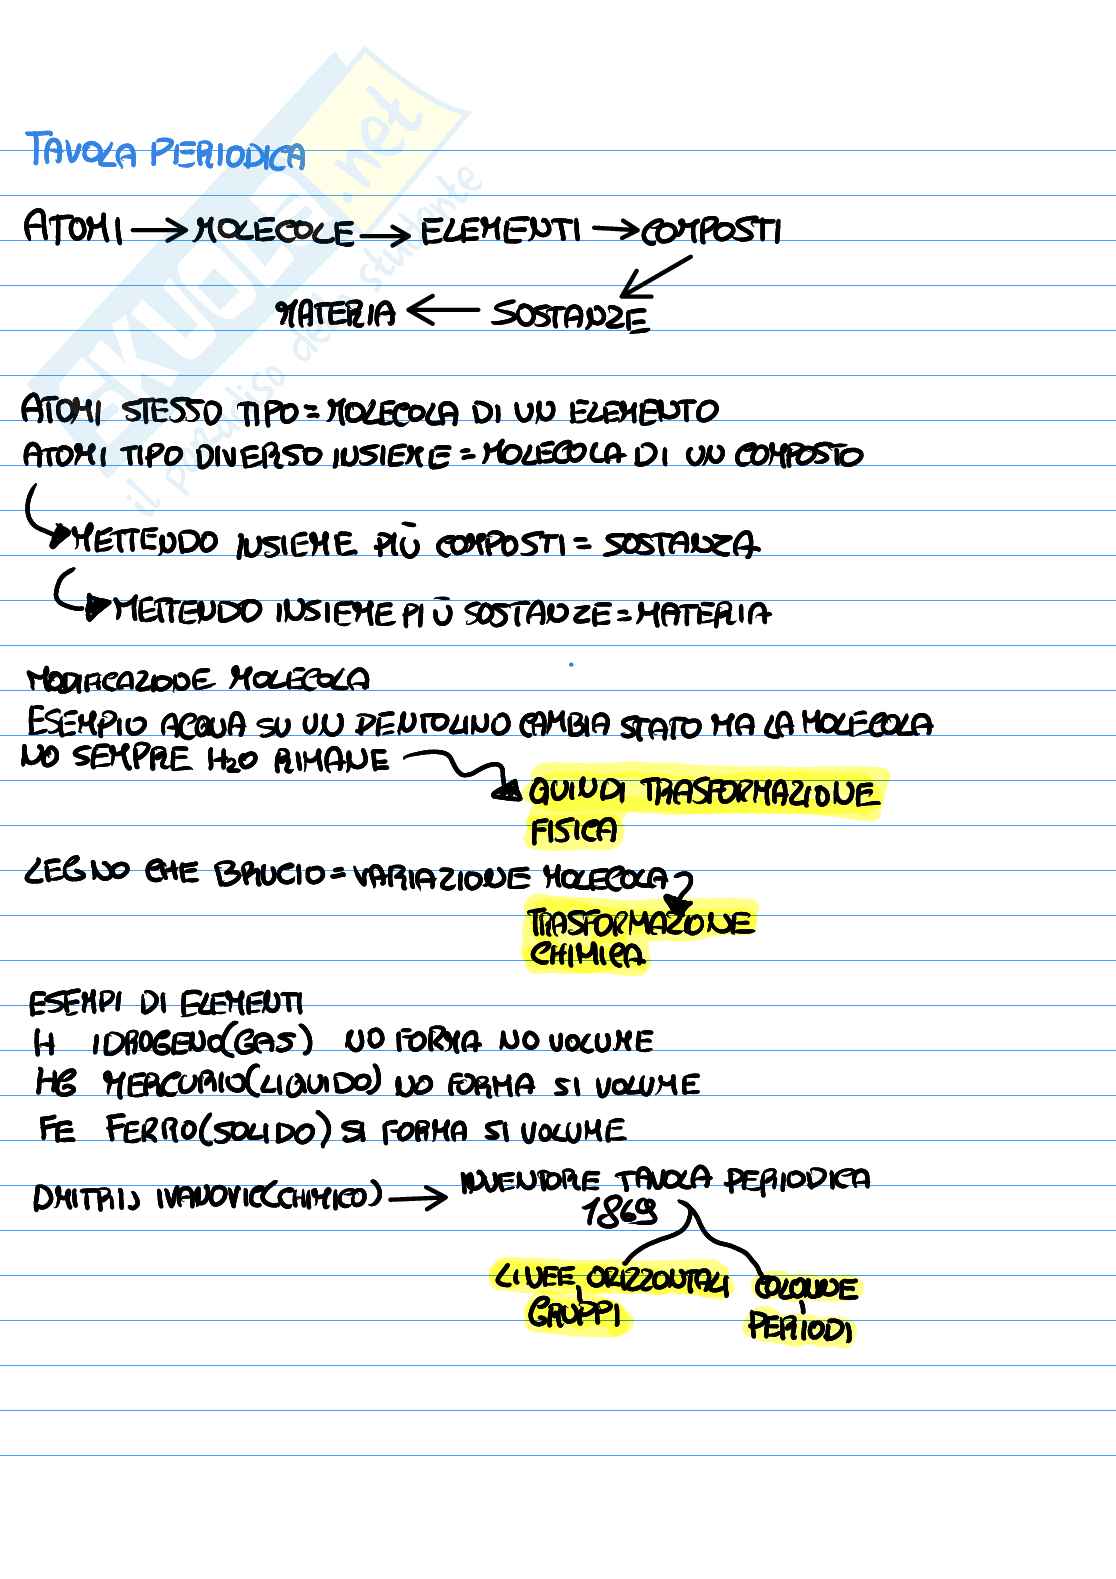 SKUOLA.net
il paradiso dello studente
TAVOLA PERIODICA
ATOMI → MOLECOLE → ELEMENTI → COMPOSTI
MATERIA ← SOSTANZE
ATOMI STESSO TIPO = MOLECOLA DI UN ELEMENTO
ATOMI TIPO DIVERSO INSIEME = MOLECOLA DI UN COMPOSTO
METTENDO INSIEME PIÙ COMPOSTI = SOSTANZA
METTENDO INSIEME PIÙ SOSTANZE = MATERIA
MODIFICAZIONE MOLECOLA
ESEMPIO ACQUA SU UN PENTOLINO CAMBIA STATO MA LA MOLECOLA
NO SEMPRE H2O RIMANE
QUINDI TRASFORMAZIONE
FISICA
LEGNO CHE BRUCIO = VARIAZIONE MOLECOLA
TRASFORMAZIONE
CHIMICA
ESEMPI DI ELEMENTI
H IDROGENO (GAS) NO FORMA NO VOLUME
HG MERCURIO (LIQUIDO) NO FORMA SI VOLUME
FE FERRO (SOLIDO) SI FORMA SI VOLUME
DMITRIJ IVANOVIC (CHIMICO) → INVENTORE TAVOLA PERIODICA
1869
LINEE ORIZZONTALI COLONNE
GRUPPI PERIODI